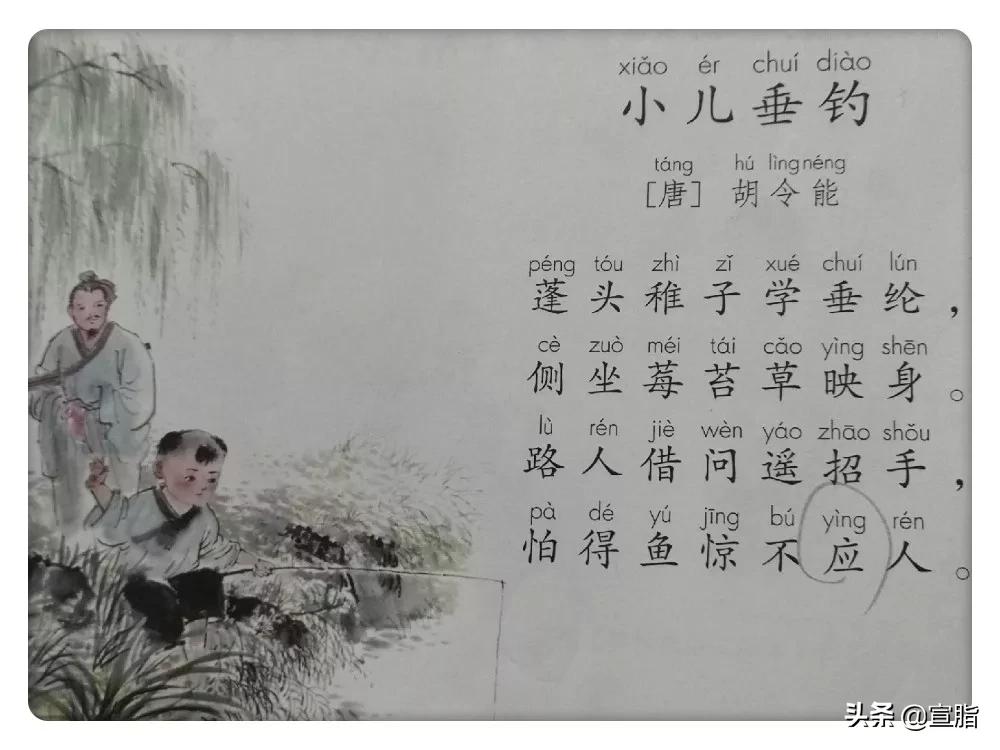 xiǎo ér chuí diào
小儿垂钓
táng hú lìng néng
［唐］胡令能
péng tóu zhì zǐ xué chuí lún
蓬头稚子学垂纶，
cè zuò méi tái cǎo yìng shēn
侧坐莓苔草映身。
lù rén jiè wèn yáo zhāo shǒu
路人借问遥招手，
pà dé yú jīng bú yìng rén
怕得鱼惊不应人。
头条 @宣脂